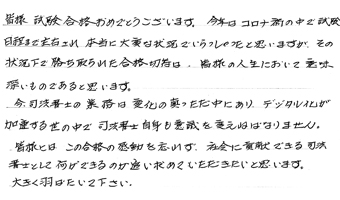 皆様 試験合格おめでとうございます。今年はコロナ禍の中で試験
日程まで左右され 本当に大変な状況でいらっしゃったと思いますが、その
状況下で勝ち取られた合格切符は、皆様の人生において意味
深いものであると思います。
今 司法書士の業務は変化の真っただ中にあり、デジタル化が
加速する世の中で 司法書士自身も意識を変えねばなりません。
皆様には この合格の感動を忘れず、社会に貢献できる司法
書士として何ができるのか追い求めていただきたいと思います。
大きく羽ばたいて下さい。